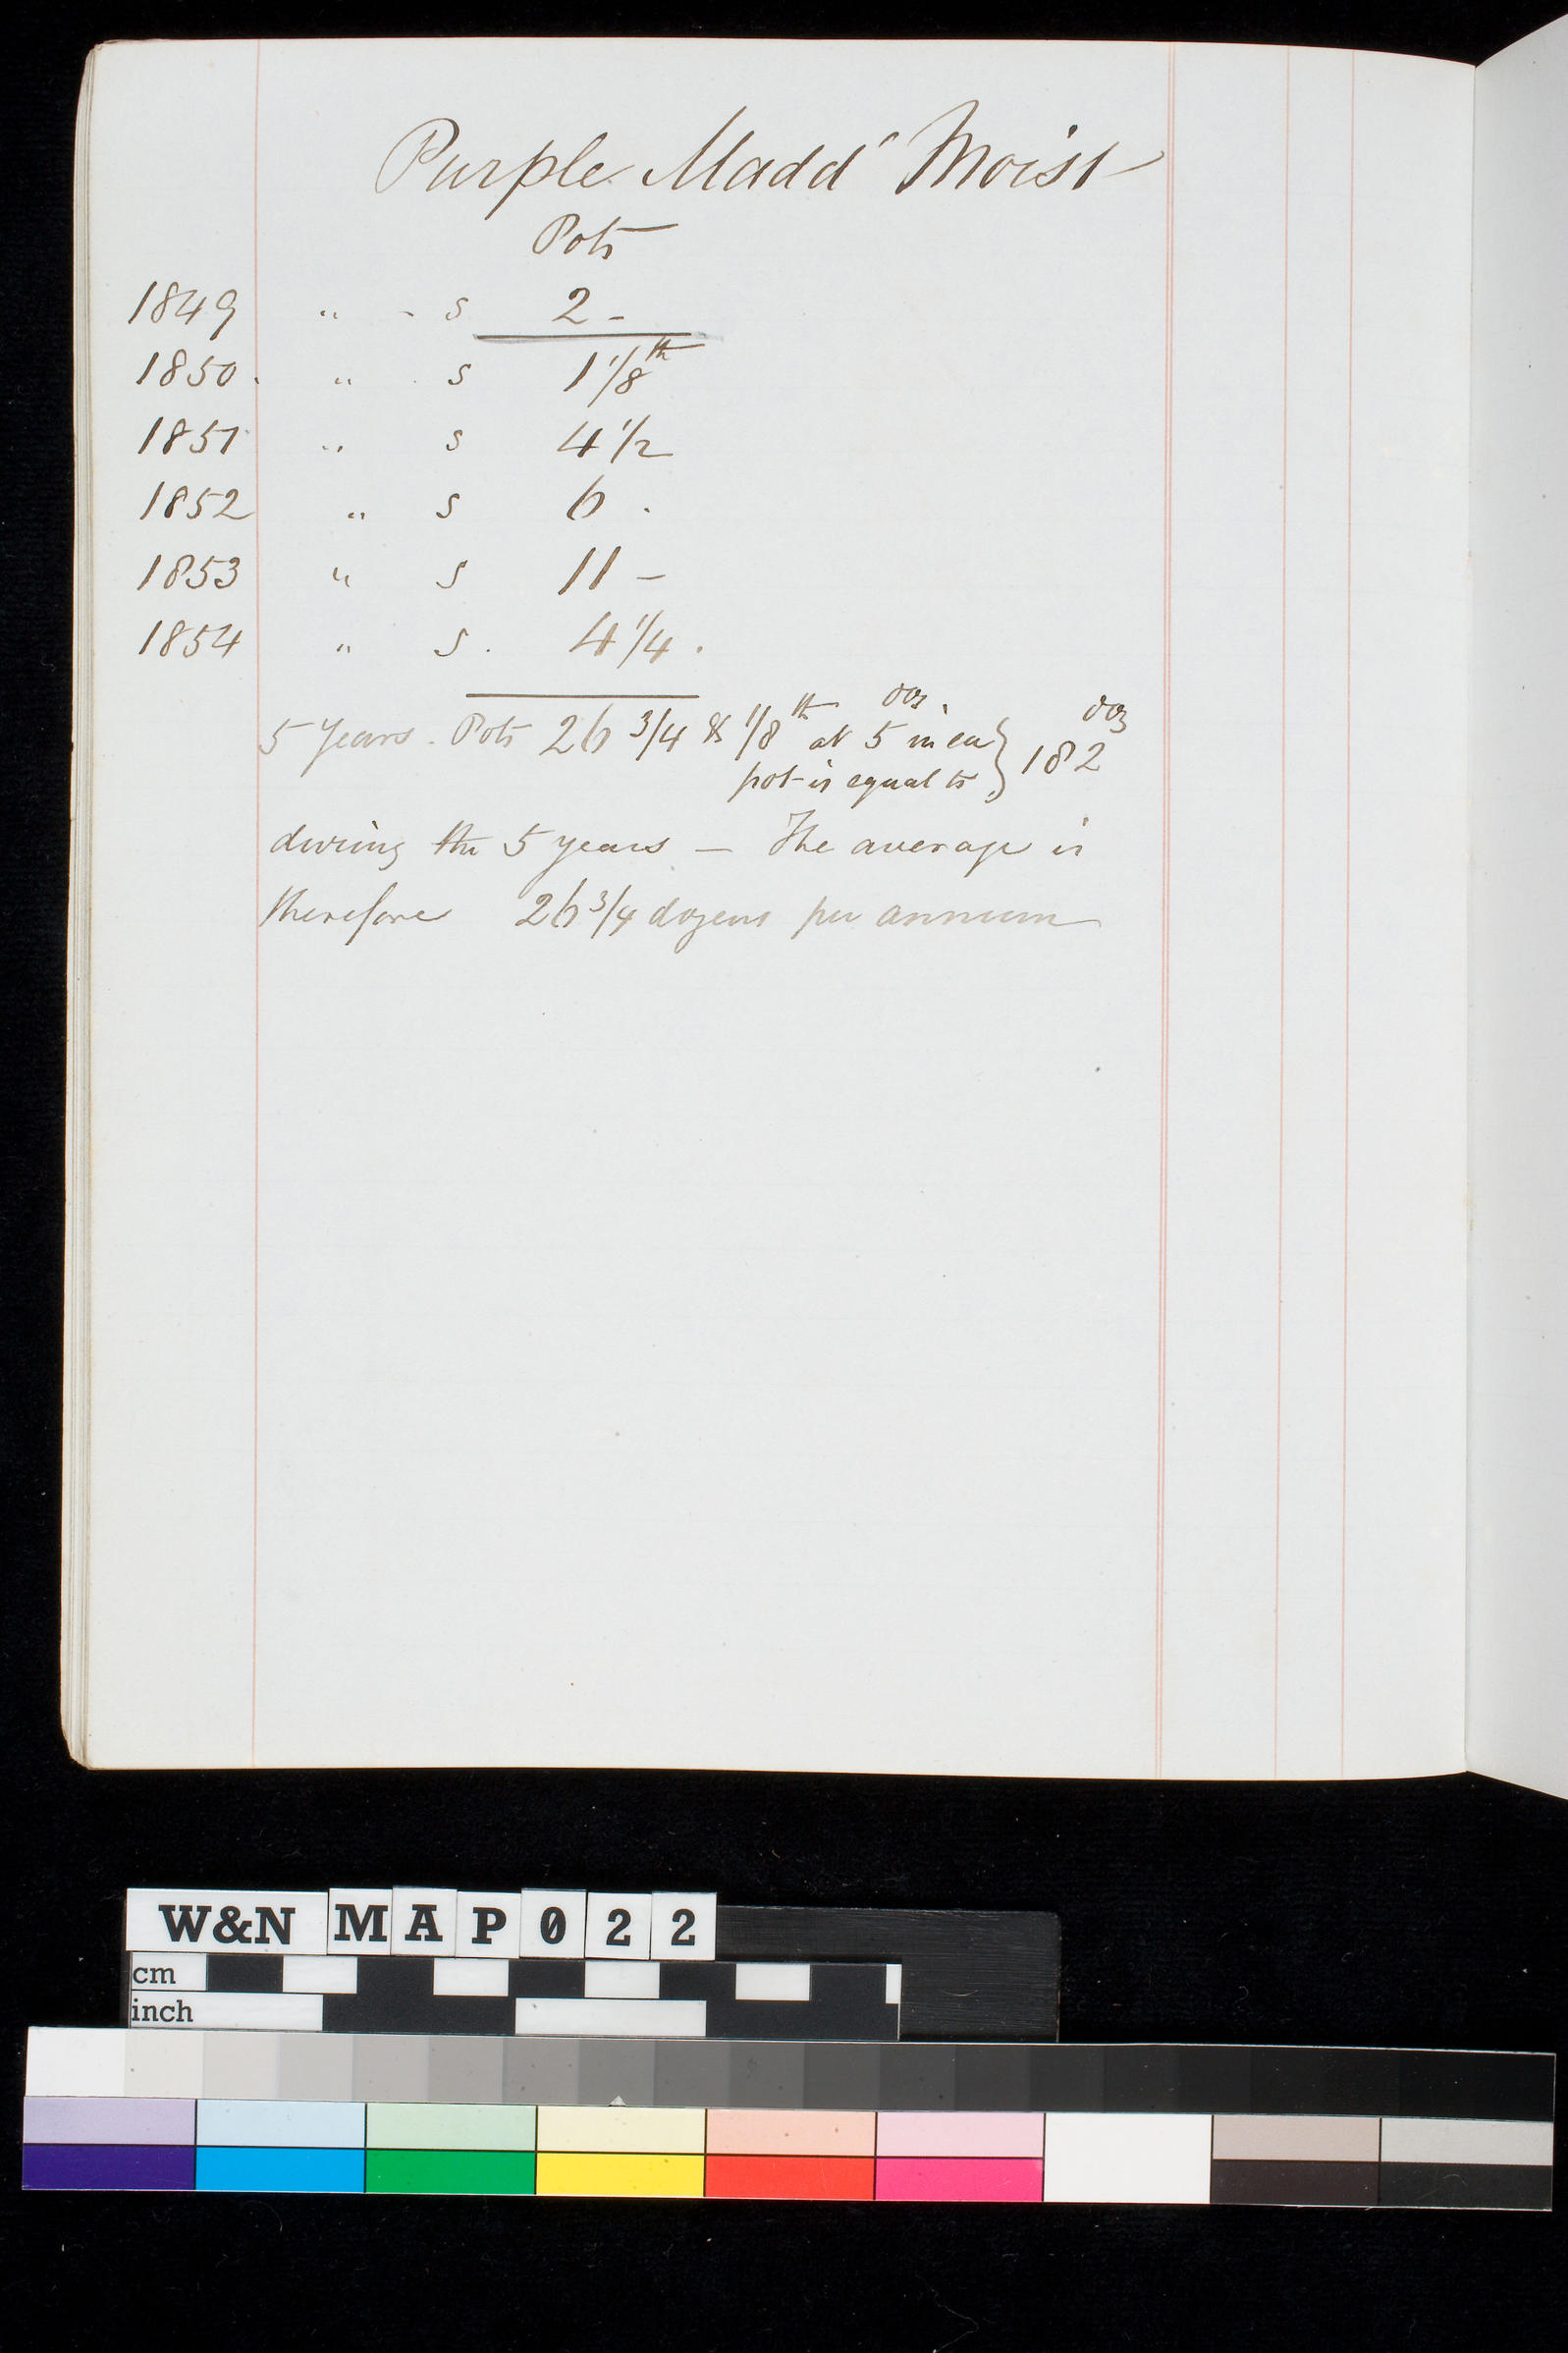 Purple Madd' Moist
Pots
1849 " - s 2 -
1850. " . s 1 1/8th
1851 " s 4 1/2
1852 " s 6 .
1853 " s 11 -
1854 " s. 4 1/4 .
5 Years. Pots 26 3/4 & 1/8th at 5 doz. in ea } 182 doz
pot is equal to
during the 5 years — The average is
therefore 26 3/4 dozens per annum
W&N MAP022
cm
inch